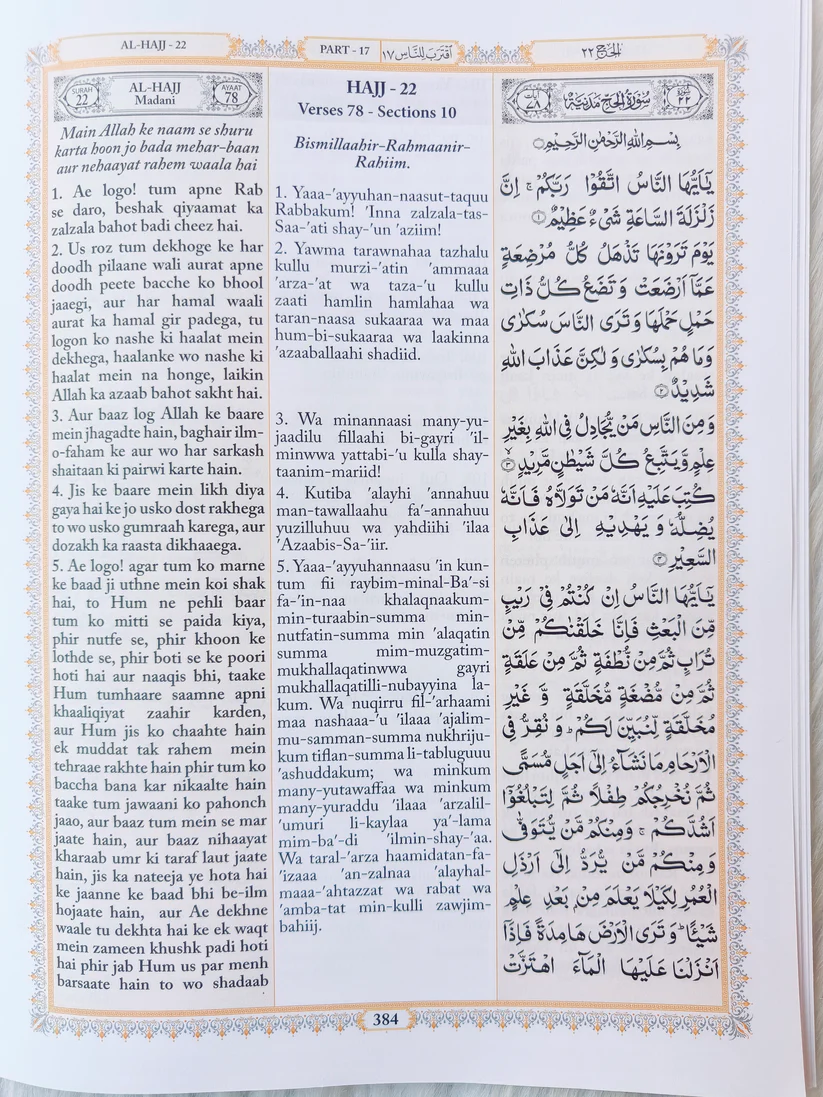 AL-HAJJ - 22
PART - 17
اقْتَرَبَ لِلنَّاسِ ١٧
اَلْحَجّ ٢٢
SURAH
22
AL-HAJJ
Madani
AYAAT
78
Main Allah ke naam se shuru
karta hoon jo bada mehar-baan
aur nehaayat rahem waala hai
1. Ae logo! tum apne Rab
se daro, beshak qiyaamat ka
zalzala bahot badi cheez hai.
2. Us roz tum dekhoge ke har
doodh pilaane wali aurat apne
doodh peete bacche ko bhool
jaaegi, aur har hamal waali
aurat ka hamal gir padega, tu
logon ko nashe ki haalat mein
dekhega, haalanke wo nashe ki
haalat mein na honge, laikin
Allah ka azaab bahot sakht hai.
3. Aur baaz log Allah ke baare
mein jhagadte hain, baghair ilm-
o-faham ke aur wo har sarkash
shaitaan ki pairwi karte hain.
4. Jis ke baare mein likh diya
gaya hai ke jo usko dost rakhega
to wo usko gumraah karega, aur
dozakh ka raasta dikhaaega.
5. Ae logo! agar tum ko marne
ke baad ji uthne mein koi shak
hai, to Hum ne pehli baar
tum ko mitti se paida kiya,
phir nutfe se, phir khoon ke
lothde se, phir boti se ke poori
hoti hai aur naaqis bhi, taake
Hum tumhaare saamne apni
khaaliqiyat zaahir karden,
aur Hum jis ko chaahte hain
ek muddat tak rahem mein
tehraae rakhte hain phir tum ko
baccha bana kar nikaalte hain
taake tum jawaani ko pahonch
jaao, aur baaz tum mein se mar
jaate hain, aur baaz nihaayat
kharaab umr ki taraf laut jaate
hain, jis ka nateeja ye hota hai
ke jaanne ke baad bhi be-ilm
hojaate hain, aur Ae dekhne
waale tu dekhta hai ke ek waqt
mein zameen khushk padi hoti
hai phir jab Hum us par menh
barsaate hain to wo shadaab
HAJJ - 22
Verses 78 - Sections 10
Bismillaahir-Rahmaanir-
Rahiim.
1. Yaaa-'ayyuhan-naasut-taquu
Rabbakum! 'Inna zalzala-tas-
Saa-'ati shay-'un 'aziim!
2. Yawma tarawnahaa tazhalu
kullu murzi-'atin 'ammaaa
'arza-'at wa taza-'u kullu
zaati hamlin hamlahaa wa
taran-naasa sukaaraa wa maa
hum-bi-sukaaraa wa laakinna
'azaaballaahi shadiid.
3. Wa minannaasi many-yu-
jaadilu fillaahi bi-gayri 'il-
minwwa yattabi-'u kulla shay-
taanim-mariid!
4. Kutiba 'alayhi 'annahuu
man-tawallaahu fa'-annahuu
yuzilluhuu wa yahdiihi 'ilaa
'Azaabis-Sa-'iir.
5. Yaaa-'ayyuhannaasu 'in kun-
tum fii raybim-minal-Ba'-si
fa-'in-naa khalaqnaakum-
min-turaabin-summa min-
nutfatin-summa min 'alaqatin
summa mim-muzgatim-
mukhallaqatinwwa gayri
mukhallaqatilli-nubayyina la-
kum. Wa nuqirru fil-'arhaami
maa nashaaa-'u 'ilaaa 'ajalim-
mu-samman-summa nukhriju-
kum tiflan-summa li-tabluguuu
'ashuddakum; wa minkum
many-yutawaffaa wa minkum
many-yuraddu 'ilaaa 'arzalil-
'umuri li-kaylaa ya'-lama
mim-ba'-di 'ilmin-shay-'aa.
Wa taral-'arza haamidatan-fa-
'izaaa 'an-zalnaa 'alayhal-
maaa-'ahtazzat wa rabat wa
'amba-tat min-kulli zawjim-
bahiij.
سورة ٢٢
سُوْرَةُ الْحَجِّ مَدَنِيَّةٌ
آيات ٧٨
بِسْمِ اللّٰهِ الرَّحْمٰنِ الرَّحِيْمِ
يٰۤاَيُّهَا النَّاسُ اتَّقُوْا رَبَّكُمْ ۚ اِنَّ
زَلْزَلَةَ السَّاعَةِ شَيْءٌ عَظِيْمٌ ۝١
يَوْمَ تَرَوْنَهَا تَذْهَلُ كُلُّ مُرْضِعَةٍ
عَمَّاۤ اَرْضَعَتْ وَتَضَعُ كُلُّ ذَاتِ
حَمْلٍ حَمْلَهَا وَتَرَى النَّاسَ سُكٰرٰى
وَمَا هُمْ بِسُكٰرٰى وَلٰكِنَّ عَذَابَ اللّٰهِ
شَدِيْدٌ ۝٢
وَمِنَ النَّاسِ مَنْ يُّجَادِلُ فِى اللّٰهِ بِغَيْرِ
عِلْمٍ وَّيَتَّبِعُ كُلَّ شَيْطٰنٍ مَّرِيْدٍ ۝٣
كُتِبَ عَلَيْهِ اَنَّهٗ مَنْ تَوَلَّاهُ فَاَنَّهٗ
يُضِلُّهٗ وَيَهْدِيْهِ اِلٰى عَذَابِ
السَّعِيْرِ ۝٤
يٰۤاَيُّهَا النَّاسُ اِنْ كُنْتُمْ فِيْ رَيْبٍ
مِّنَ الْبَعْثِ فَاِنَّا خَلَقْنٰكُمْ مِّنْ
تُرَابٍ ثُمَّ مِنْ نُّطْفَةٍ ثُمَّ مِنْ عَلَقَةٍ
ثُمَّ مِنْ مُّضْغَةٍ مُّخَلَّقَةٍ وَّغَيْرِ
مُخَلَّقَةٍ لِّنُبَيِّنَ لَكُمْ ؕ وَنُقِرُّ فِى
الْاَرْحَامِ مَا نَشَآءُ اِلٰۤى اَجَلٍ مُّسَمًّى
ثُمَّ نُخْرِجُكُمْ طِفْلًا ثُمَّ لِتَبْلُغُوْۤا
اَشُدَّكُمْ ۚ وَمِنْكُمْ مَّنْ يُّتَوَفّٰى
وَمِنْكُمْ مَّنْ يُّرَدُّ اِلٰۤى اَرْذَلِ
الْعُمُرِ لِكَيْلَا يَعْلَمَ مِنْۢ بَعْدِ عِلْمٍ
شَيْـًٔا ؕ وَتَرَى الْاَرْضَ هَامِدَةً فَاِذَاۤ
اَنْزَلْنَا عَلَيْهَا الْمَآءَ اهْتَزَّتْ
384